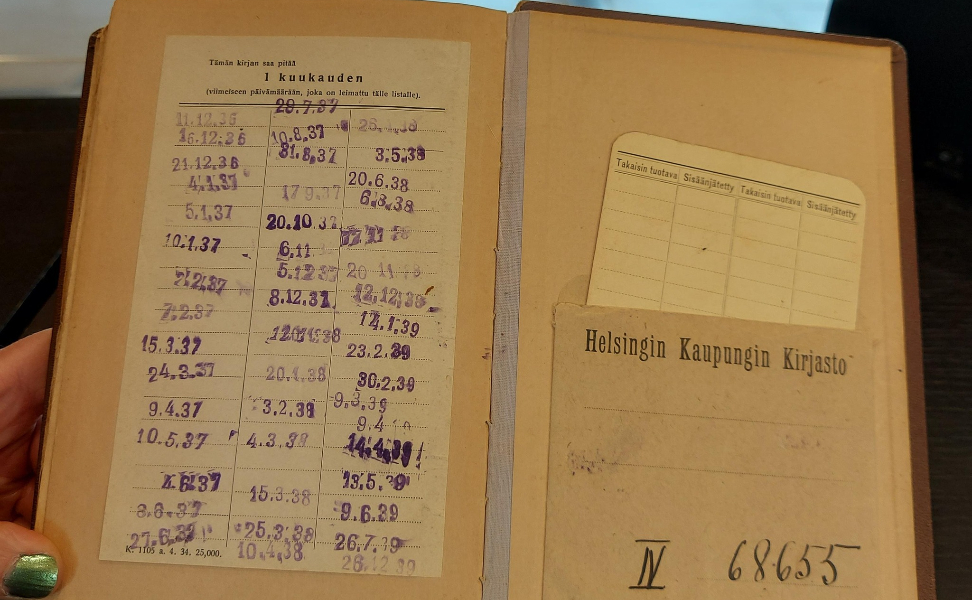 Tämän kirjan saa pitää
1 kuukauden
(viimeiseen päivämäärään, joka on leimattu tälle listalle).
11.12.36
16.12.36
21.12.36
4.1.37
5.1.37
10.1.37
2.2.37
7.2.37
15.3.37
24.3.37
9.4.37
10.5.37
4.6.37
8.6.37
27.6.37
K. 1105 a. 4. 34. 25,000.
29.7.37
10.8.37
31.8.37
17.9.37
20.10.37
6.11
5.12.37
8.12.37
20.1.38
3.2.38
4.3.38
15.3.38
25.3.38
10.4.38
3.5.38
20.6.38
6.8.38
12.12.38
14.1.39
23.2.39
30.2.39
9.3.39
14.4.39
13.5.39
9.6.39
26.7.39
26.12.39
Takaisin tuotava Sisäänjätetty Takaisin tuotava Sisäänjätetty
Helsingin Kaupungin Kirjasto
IV 68655